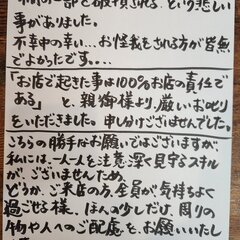 の一部を破損される、という悲しい
事がありました。
不幸中の幸い…お怪我をされる方が皆無
でよかったです。…
「お店で起きた事は100%お店の責任で
ある」と、親御様より、厳しいお叱り
をいただきました。申し分けございませんでした。
こちらの勝手なお願いではございますが、
私には、一人一人を注意深く見守るスキル
が、ございませんため、
どうか、ご来店の方、全員が気持ちよく
過ごせる様、ほんの少しだけ、周りの
物や人へのご配慮を、お願いいたし